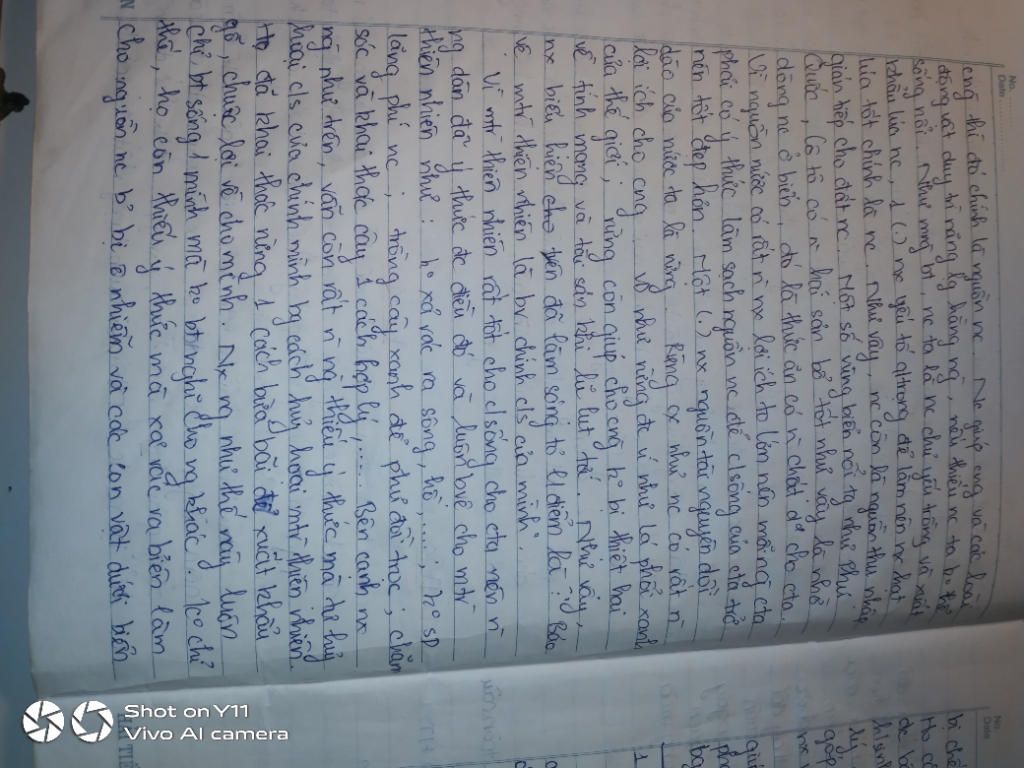 No.
Date
cũng thì đó chính là nguồn nc. Nc giúp cng và các loài
động vật duy trì năng lg hằng ng, nếu thiếu nc ta ko thể
sống nổi. Như mng bt, nc ta là nc chủ yếu trồng và xuất
khẩu lúa nc, 1 (.) nx yếu tố qtrọng để làm nên nx hạt
lúa tốt chính là nc. Như vậy, nc còn là nguồn thu nhập
gián tiếp cho đất nc. Một số vùng biển nổi ra như Phú
Quốc, Cô Tô có n hải sản bổ tốt như vậy là nhờ
dòng nc ở biển, đó là thức ăn có n chất d² cho cta.
Vì nguồn nước có rất n nx lợi ích to lớn nên mỗi ng cta
phải có ý thức làm sạch nguồn nc để c/sống của cta trở
nên tốt đẹp hơn. Một (.) nx nguồn tài nguyên dồi
dào của nước ta là rừng. Rừng cx như nc có rất n
lợi ích cho cng. Vd như rừng đc ví như lá phổi xanh
của thế giới; rừng còn giúp cho cng ko bị thiệt hại
về tính mạng và tài sản khi lũ lụt tới. Như vậy,
nx biểu hiện cho trên đã làm sáng tỏ l/điểm là: "Bảo
vệ mtr thiên nhiên là bv chính c/s của mình".
Vì mtr thiên nhiên rất tốt cho c/sống cho cta nên n
ng dân đã ý thức đc điều đó và luôn bvệ cho mtr
thiên nhiên như: ko xả rác ra sông, hồ,....; ko sp
lãng phí nc; trồng cây xanh để phủ đồi trọc; chăm
sóc và khai thác cây 1 cách hợp lý;.... Bên cạnh nx
ng như trên, vẫn còn rất n ng thiếu ý thức mà tự hủy
hoại c/s của chính mình bg cách hủy hoại mtr thiên nhiên.
Họ đã khai thác rừng 1 cách bừa bãi để xuất khẩu
gỗ, chuộc lợi về cho mình. Nx ng như thế này luôn
chỉ bt sống 1 mình mà ko bt nghĩ cho ng khác. ko chỉ
thế, họ còn thiếu ý thức mà xả rác ra biển làm
cho nguồn nc bị ô nhiễm và các con vật dưới biển
No.
Date
bị chế
Shot on Y11
Vivo AI camera